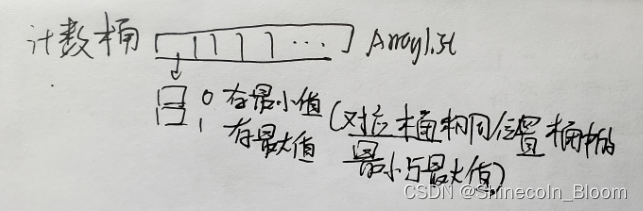 计数桶 ArrayList
0 存最小值 (对应桶相同位置桶中的
1 存最大值 最小与最大值)
CSDN @Shinecoln_Bloom